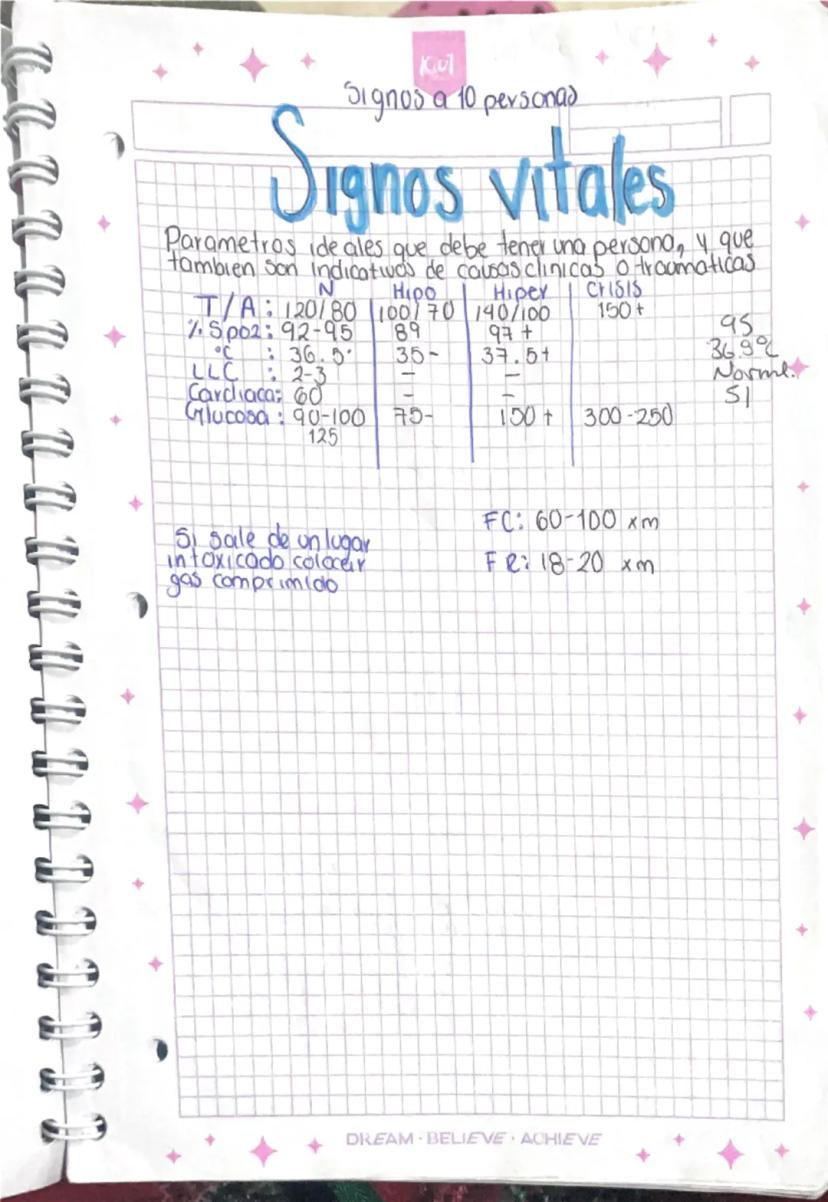 Kut
Signos a 10 personas
Signos vitales
Parametros ideales que debe tener una persona, y que
tambien son indicativos de causas clinicas o traumaticas
N Hipo Hiper Crisis
T/A: 120/80 100/70 140/100 150+
% Spo2: 92-95 89 97+ 95
°C : 36.5° 35- 37.5+ 36.9°C
LLC : 2-3 - - Norme.
Cardiaca: 60 - - SI
Glucosa: 90-100 75- 150+ 300-250
125
FC: 60-100 xm
Si sale de un lugar
intoxicado colocar FR: 18-20 xm
gas comprimido
DREAM · BELIEVE · ACHIEVE